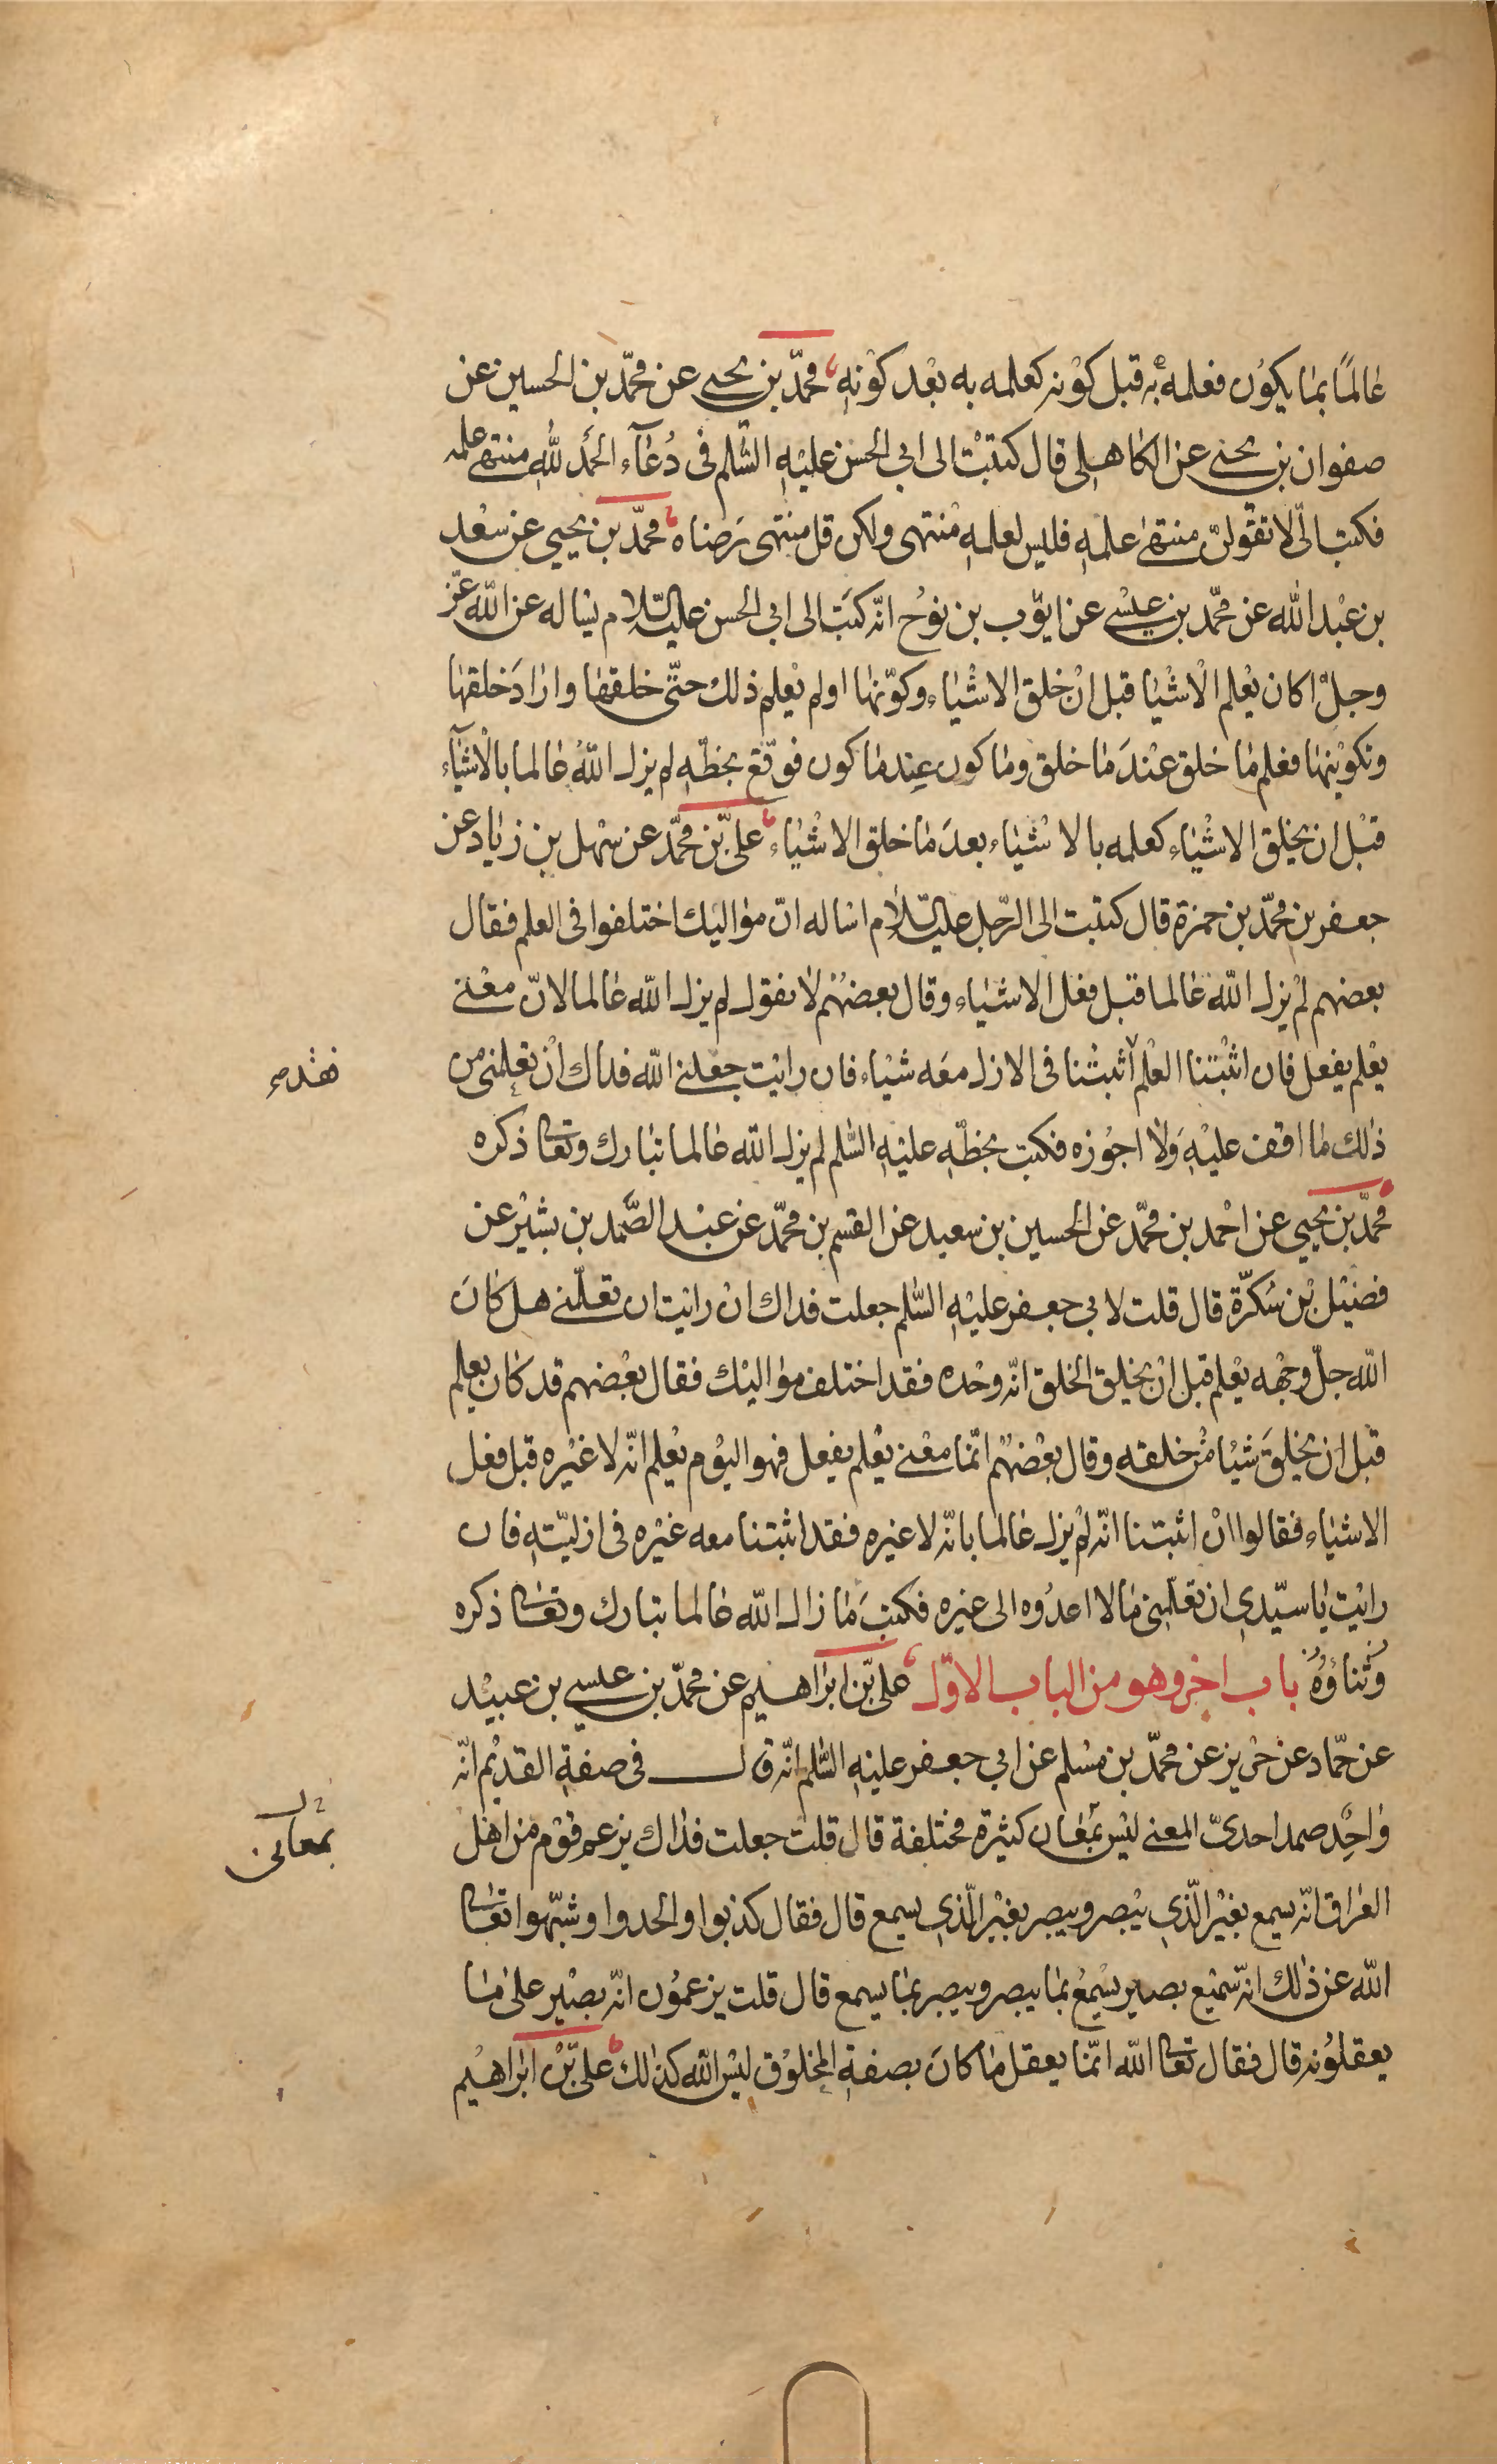 عالمًا بما يكون فعلمه به قبل كونه كعلمه به بعد كونه محمّد بن يحيى عن محمّد بن الحسين عن
صفوان بن يحيى عن الكاهلى قال كتبت الى ابي الحسن عليه السّلم فى دُعآء الحمد للّه منتهى علمه
فكتب الىّ لا تقولنّ منتهى علمه فليس لعلمه منتهى ولكن قل منتهى رضاه محمّد بن يحيى عن سعد
بن عبد اللّه عن محمّد بن عيسى عن ايّوب بن نوح انّه كتب الى ابي الحسن عليه السّلام يساله عن اللّه عزّ
وجلّ اكان يعلم الاشيا قبل ان خلق الاشياء وكوّنها او لم يعلم ذلك حتّى خلقها واراد خلقها
وتكوينها فعلم ما خلق عند ما خلق وما كون عند ما كون فوقّع بخطّه لم يزل اللّه عالما بالاشيآء
قبل ان يخلق الاشياء كعلمه بالاشياء بعد ما خلق الاشياء علىّ بن محمّد عن سهل بن زياد عن
جعفر بن محمّد بن حمزة قال كتبت الى الرّجل عليه السّلام اساله انّ مواليك اختلفوا فى العلم فقال
بعضهم لم يزل اللّه عالما قبل فعل الاشياء وقال بعضهم لا نقول لم يزل اللّه عالما لانّ معنى
يعلم يفعل فان اثبتنا العلم اثبتنا فى الازل معه شيئاء فان رايت جعلنى اللّه فداك ان تعلمنى من
ذلك ما اقف عليه ولا اجوزه فكتب بخطّه عليه السّلم لم يزل اللّه عالما تبارك وتعالى ذكره
محمّد بن يحيى عن احمد بن محمّد عن الحسين بن سعيد عن القسم بن محمّد عن عبد الصّمد بن بشير عن
فضيل بن سكرّة قال قلت لابي جعفر عليه السّلم جعلت فداك ان رايت ان تعلّمنى هل كان
اللّه جلّ وجهه يعلم قبل ان يخلق الخلق انّه وحده فقد اختلف مواليك فقال بعضهم قد كان يعلم
قبل ان يخلق شيئا من خلقه وقال بعضهم انّما معنى يعلم يفعل فهو اليوم يعلم انّه لا غيره قبل فعل
الاشياء فقالوا ان اثبتنا انّه لم يزل عالما بانّه لا غيره فقد اثبتنا معه غيره فى ازليّته فان
رايت يا سيّدي ان تعلّمنى ما لا اعدوه الى غيره فكتب ما زال اللّه عالما تبارك وتعالى ذكره
وثناؤه باب اخر وهو من الباب الاوّل علىّ بن ابراهيم عن محمّد بن عيسى بن عبيد
عن حمّاد عن حريز عن محمّد بن مسلم عن ابي جعفر عليه السّلم انّه قال فى صفة القديم انّه
واحد صمد احدىّ المعنى ليس بمعان كثيرة مختلفة قال قلت جعلت فداك يزعم قوم من اهل
العراق انّه يسمع بغير الّذي يبصر ويبصر بغير الّذي يسمع قال فقال كذبوا والحدوا وشبّهوا تعالى
اللّه عن ذلك انّه سميع بصير يسمع بما يبصر ويبصر بما يسمع قال قلت يزعمون انّه بصير على ما
يعقلونه قال فقال تعالى اللّه انّما يعقل ما كان بصفة المخلوق ليس اللّه كذلك علىّ بن ابراهيم
بمعانى